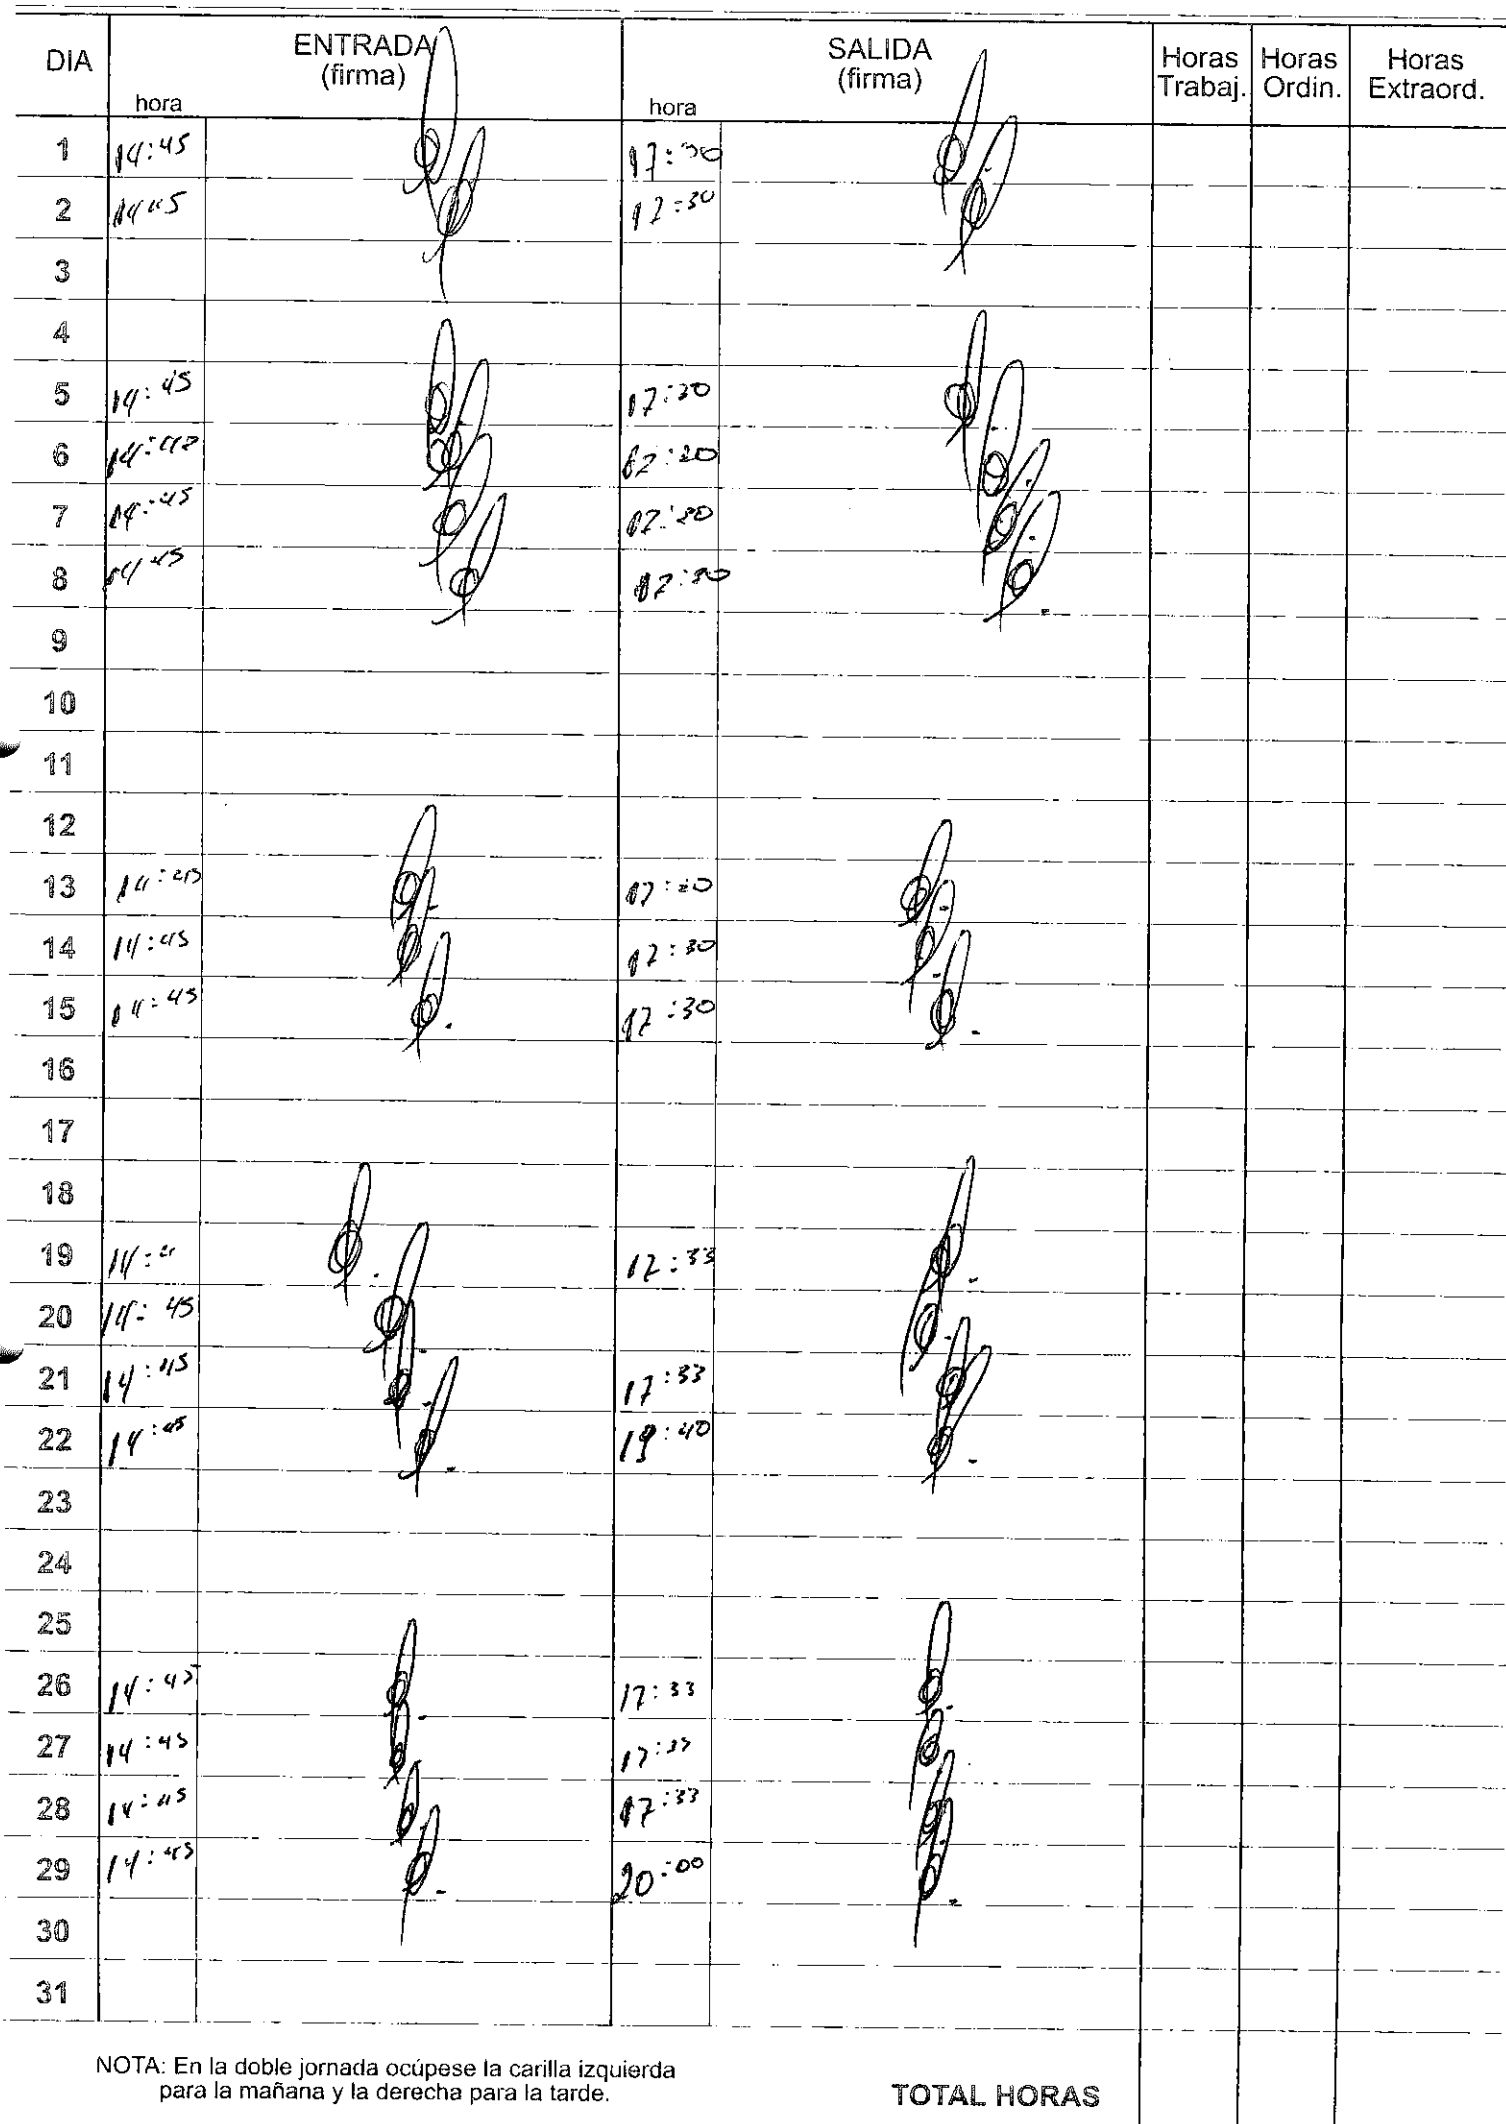 DIA ENTRADA (firma) hora SALIDA (firma) hora Horas Trabaj. Horas Ordin. Horas Extraord.
1 14:45 17:30
2 14:45 17:30
3
4
5 14:45 17:30
6
7 14:45 17:30
8 14:45 17:30
9
10
11
12
13 14:45 17:30
14 14:45 17:30
15 14:45 17:30
16
17
18
19 17:33
20 14:45
21 14:45 17:33
22 14:45 19:40
23
24
25
26 14:45 17:33
27 14:45 17:33
28 14:45 17:33
29 14:45 20:00
30
31
NOTA: En la doble jornada ocúpese la carilla izquierda
para la mañana y la derecha para la tarde.
TOTAL HORAS